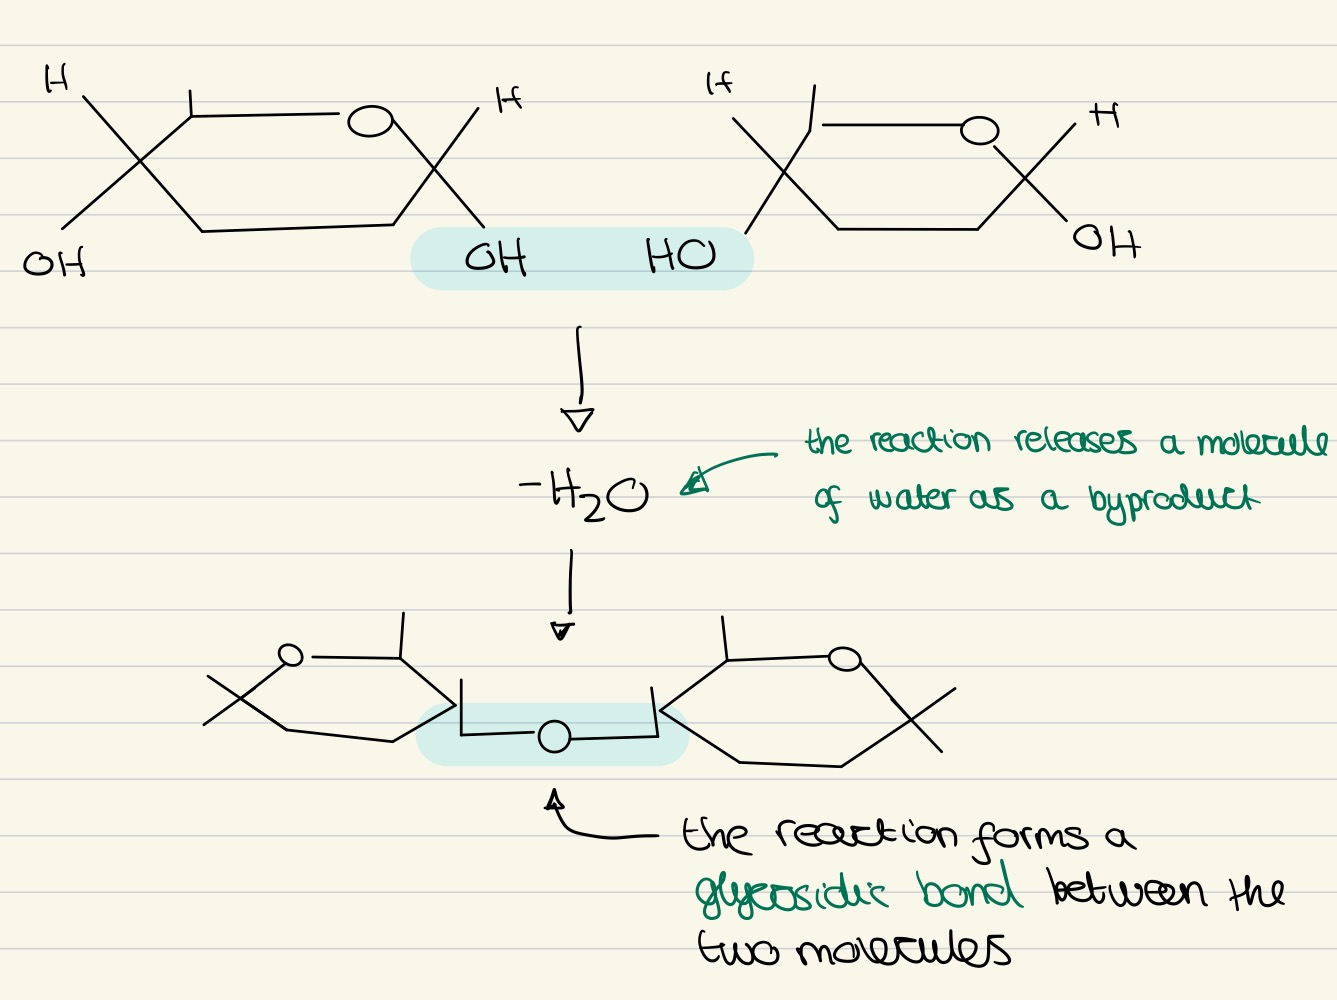 H H H H
O O
OH OH HO OH
the reaction releases a molecule
-H₂O
of water as a byproduct
O O
O
the reaction forms a
glycosidic bond between the
two molecules